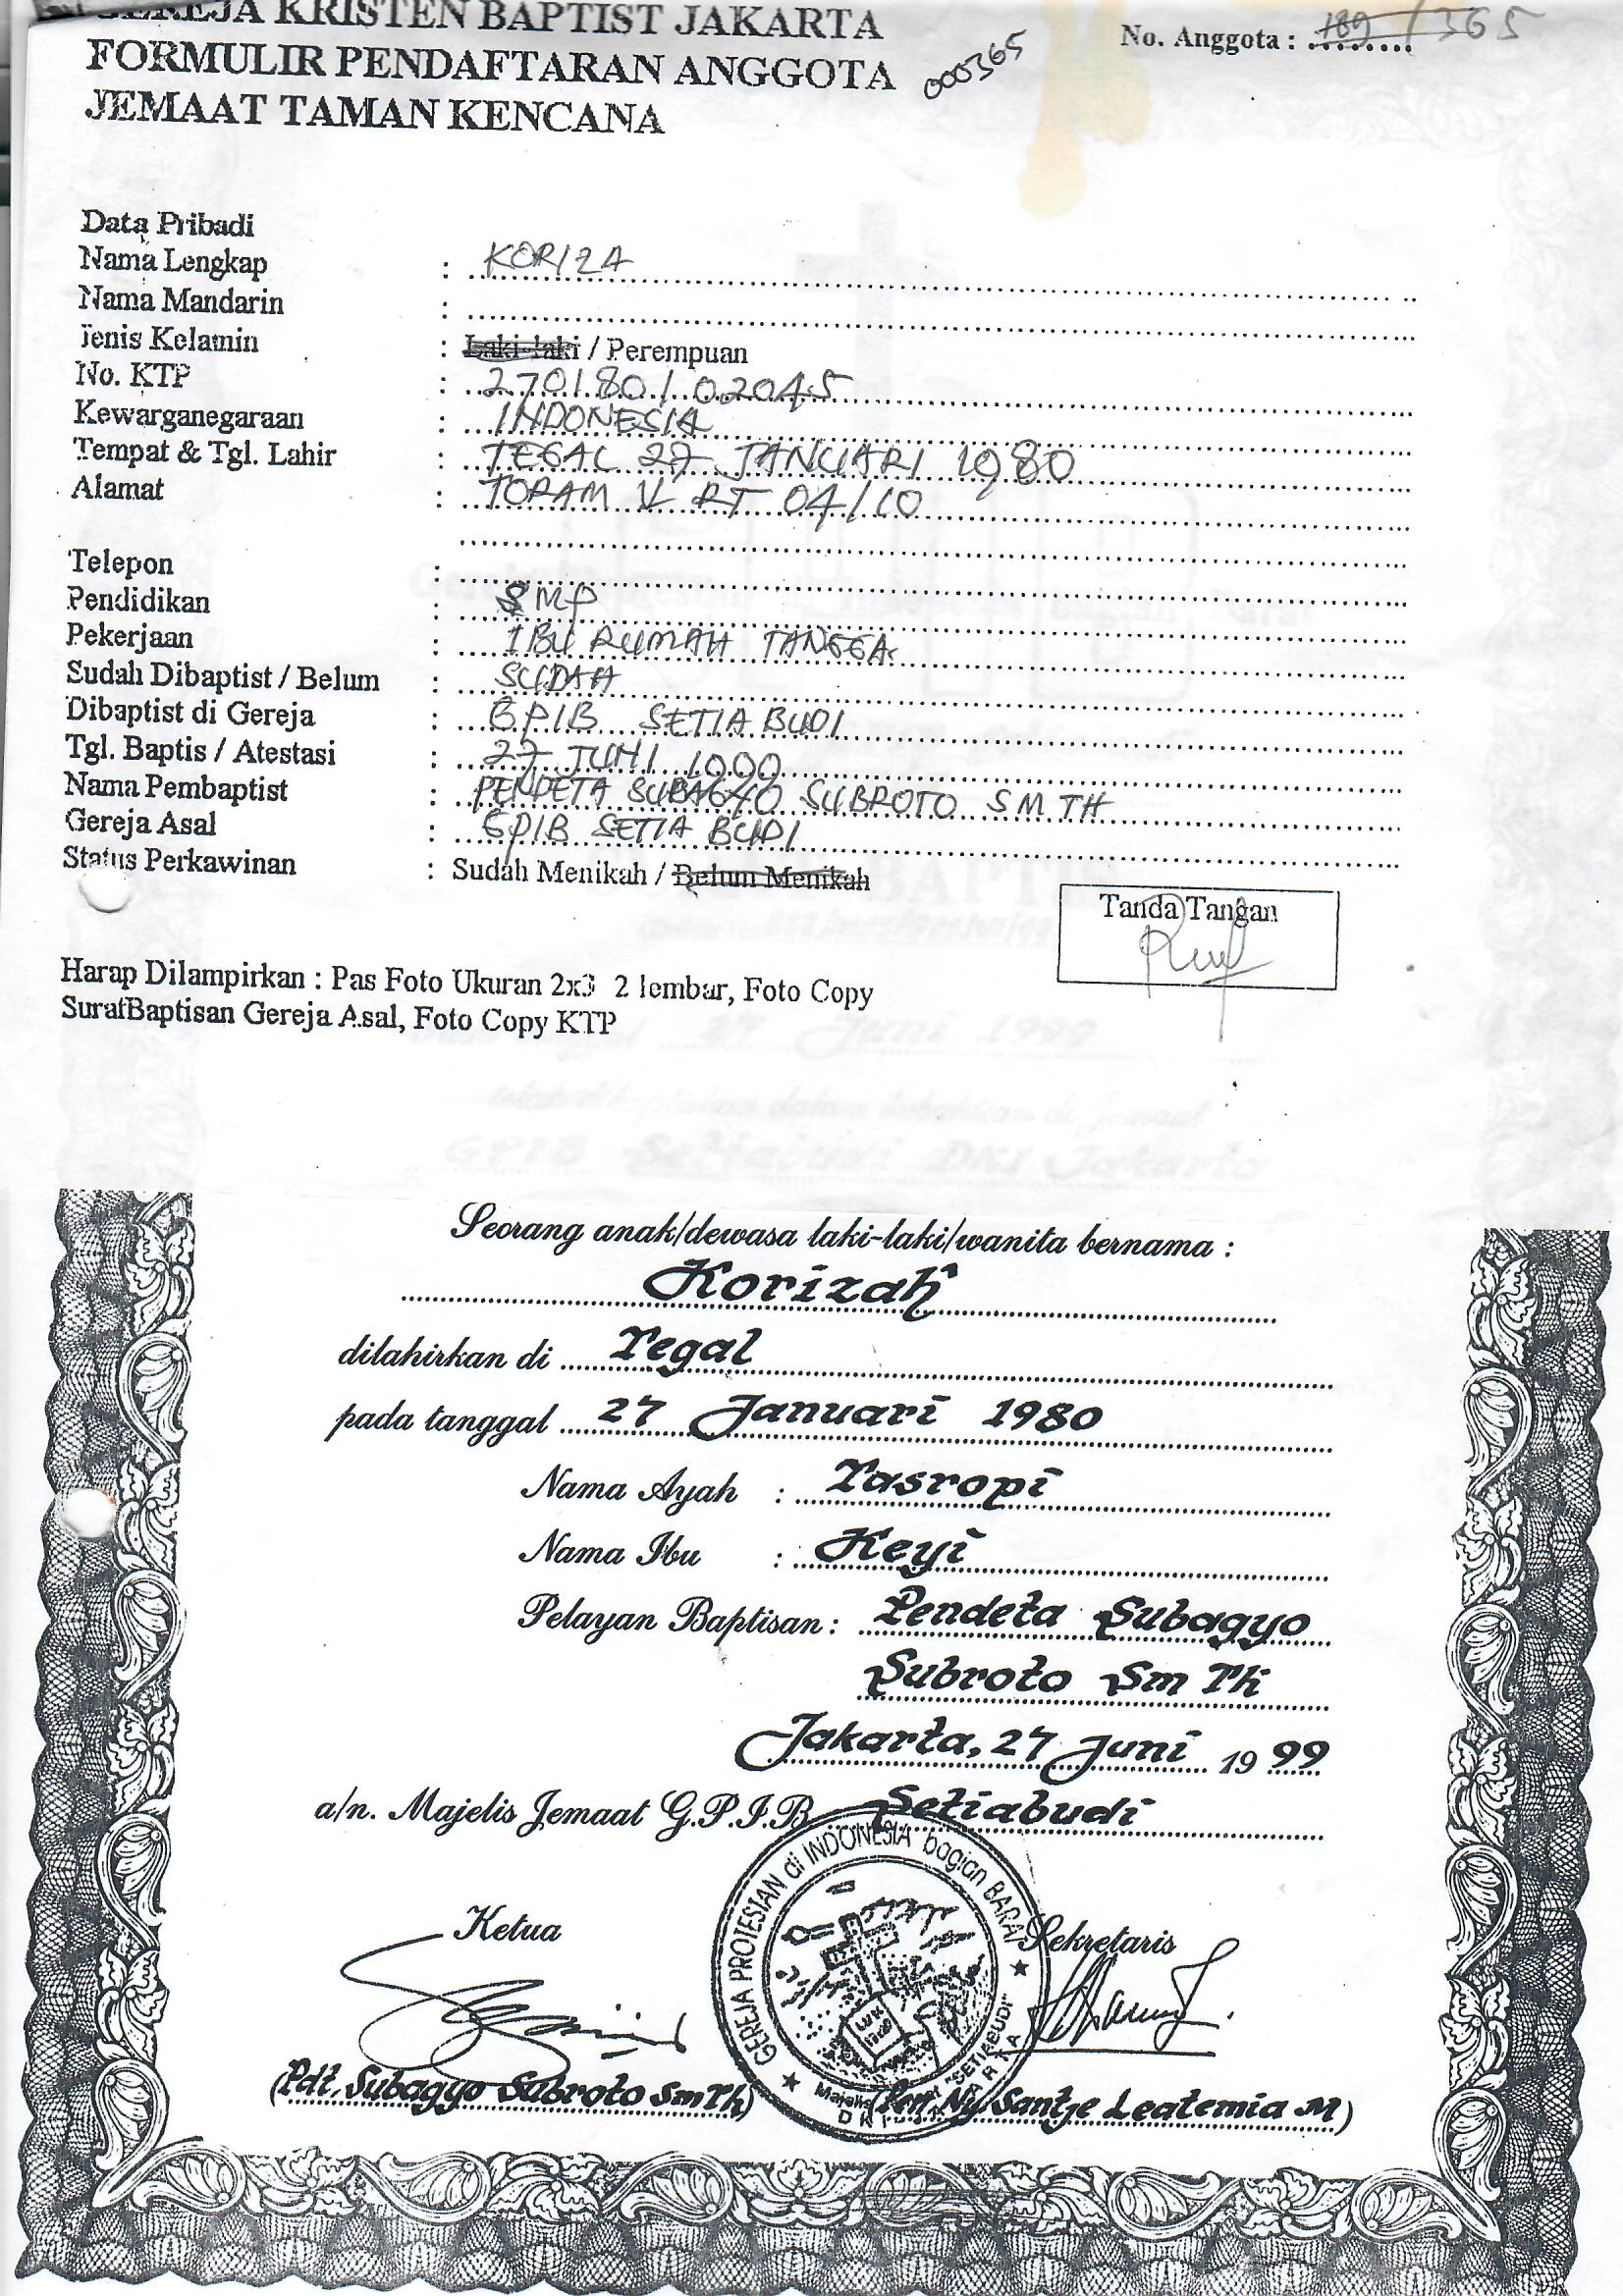 GEREJA KRISTEN BAPTIST JAKARTA
FORMULIR PENDAFTARAN ANGGOTA
JEMAAT TAMAN KENCANA
000365
No. Anggota : 189 / 365
Data Pribadi
Nama Lengkap : KORIZA
Nama Mandarin :
Jenis Kelamin : Laki-laki / Perempuan
No. KTP : 270180/02045
Kewarganegaraan : INDONESIA
Tempat & Tgl. Lahir : TEGAL 27 JANUARI 1980
Alamat : V RT 04/10
Telepon :
Pendidikan : SMP
Pekerjaan : IBU RUMAH TANGGA
Sudah Dibaptist / Belum : SUDAH
Dibaptist di Gereja : GPIB SETIA BUDI
Tgl. Baptis / Atestasi : 27 JUNI
Nama Pembaptist : PENDETA SUBAGYO SUBROTO SM TH
Gereja Asal : GPIB SETIA BUDI
Status Perkawinan : Sudah Menikah / Belum Menikah
Tanda Tangan
Harap Dilampirkan : Pas Foto Ukuran 2x3 2 lembar, Foto Copy
SuratBaptisan Gereja Asal, Foto Copy KTP
27 Juni 1999
GPIB Setiabudi DKI Jakarta
Seorang anak/dewasa laki-laki/wanita bernama :
Korizah
dilahirkan di Tegal
pada tanggal 27 Januari 1980
Nama Ayah : Tasropi
Nama Ibu : Keyi
Pelayan Baptisan : Pendeta Subagyo
Subroto Sm Th
Jakarta, 27 Juni 1999
a/n. Majelis Jemaat G.P.I.B. Setiabudi
GEREJA PROTESTAN di INDONESIA bagian BARAT
Ketua Sekretaris
"SETIABUDI"
(Pdt. Subagyo Subroto Sm Th) (Pen. Ny Santje Leatemia M)